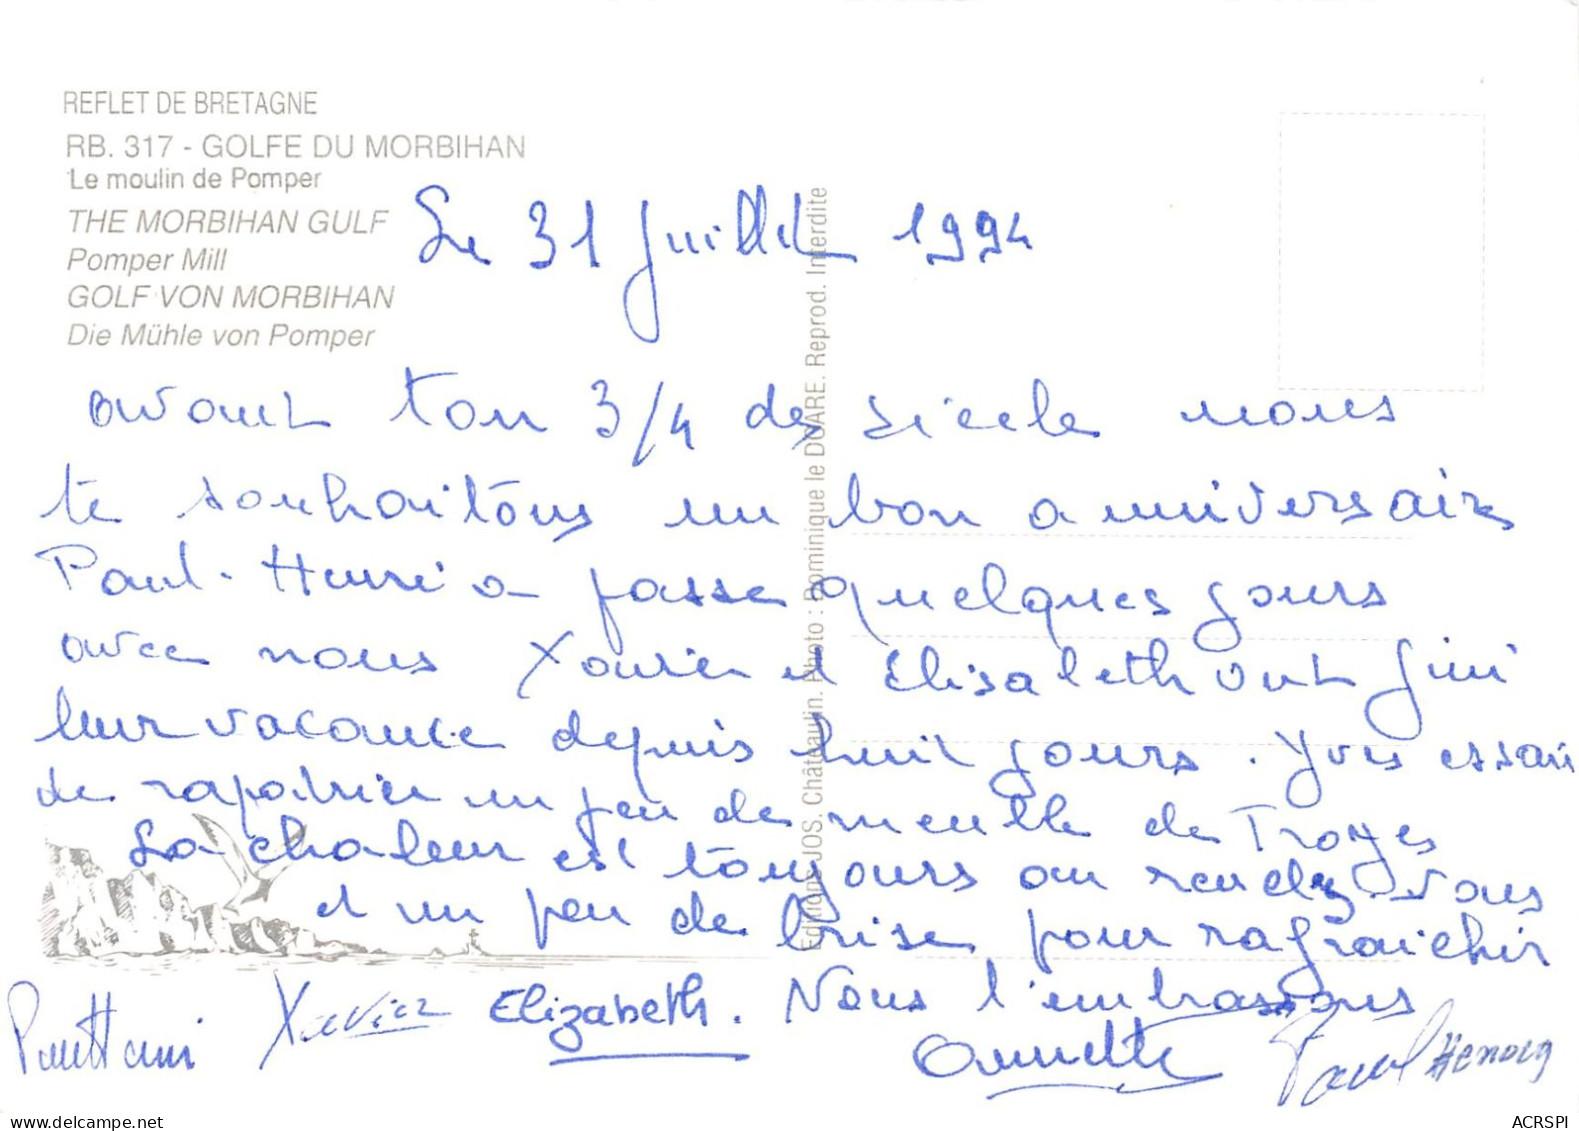 REFLET DE BRETAGNE
RB. 317 - GOLFE DU MORBIHAN
Le moulin de Pomper
THE MORBIHAN GULF
Pomper Mill
GOLF VON MORBIHAN
Die Mühle von Pomper
Le 31 juillet 1994
avant ton 3/4 de siècle nous
te souhaitons un bon anniversaire
Paul-Henri a passé quelques jours
avec nous Xavier et Elisabeth ont fini
leur vacance depuis huit jours. Yves essaie
de rapatrier un peu de meuble de Troyes
La chaleur est toujours au rendez-vous
et un peu de brise pour rafraichir
Paul Henri Xavier Elizabeth. Nous l'embrassons
Annette Paul
Editions JOS. Châteaulin. Photo : Dominique le DOARE. Reprod. Interdite
ACRSPI